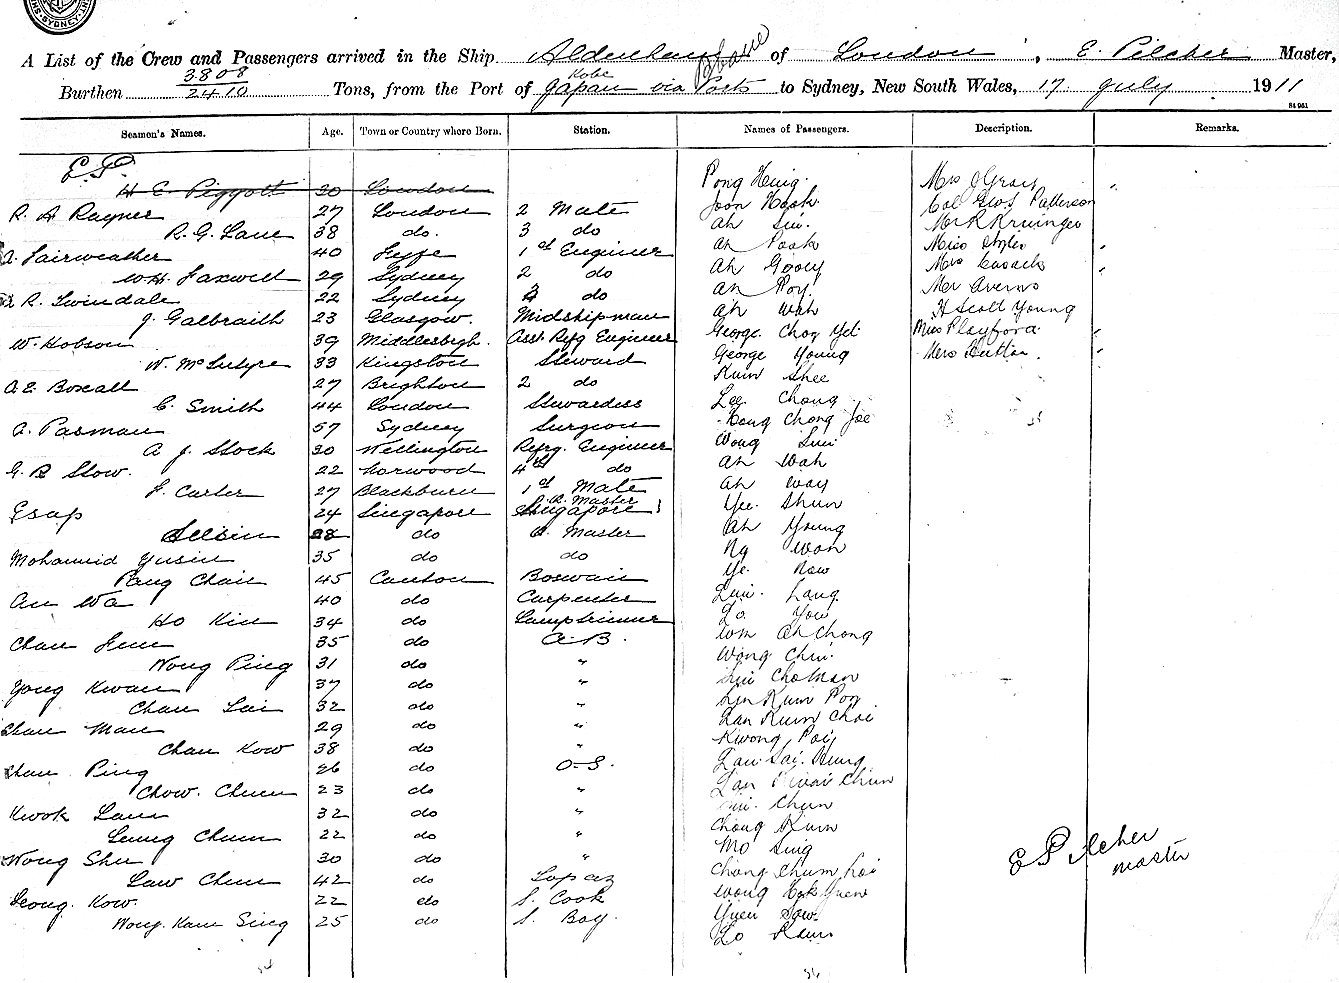 SYDNEY
A List of the Crew and Passengers arrived in the Ship Aldenham of London, E. Pilcher Master,
Burthen 3808 / 2410 Tons, from the Port of Kobe Japan via Ports to Sydney, New South Wales, 17 July 1911
Seamen's Names. Age. Town or Country where Born. Station. Names of Passengers. Description. Remarks.
E.P.
H E Piggott 30 London
R. A Rayner 27 London 2 Mate
R. G. Lane 38 do. 3 do
A. Fairweather 40 Fyfe 1st Engineer
W.H. Faxwell 29 Sydney 2 do
R. Swindale 22 Sydney 3 do
J. Galbraith 23 Glasgow. Midshipman
W. Hobson 39 Middlesbrgh. Asst Refg Engineer
W. McIntyre 33 Kingston Steward
A E. Boxall 27 Brighton 2 do
C. Smith 44 London Stewardess
A. Pasman 57 Sydney Surgeon
A J. Stock 30 Wellington Refrg. Engineer
G. B Stow. 22 Norwood 4th do
F. Carter 27 Blackburn 1st Mate
Esap 24 Singapore
28 do Q. Master
Mohamid Yusin 35 do do
Pang Chain 45 Canton Boswain
Au Wa 40 do Carpenter
Ho Kin 34 do Lamptrimmer
Chan 35 do A.B.
Wong Ping 31 do "
Yong Kwan 37 do "
Chan Lai 32 do "
Chan Man 29 do "
Chan Kow 38 do "
Chan Ping 26 do O.S.
Chow. Chun 23 do "
Kwok Lam 32 do "
Leung Chum 22 do "
Wong Shu 30 do "
Law Chun 42 do
Leong. Kow. 22 do S. Cook
Wong. Kam Sing 25 do S. Boy.
Pong Heng.
Joon Hook
Ah
Ah Pook
Ah Gooey
Ah Poy.
Ah Wah
George Choy
George Young
Kum Shee
Lee Chong
Hong Chong Joe
Wong
Ah Wah
Ah Way
Yee Shun
Ah Young
Ng Won
Ye Now
Lang
Lo You
Wm Ah Chong
Wong Chu.
Cho Man
Kum Poy
Kum Choi
Kwong Poi
Lau Sai
Chun
Chun
Chong Kum
Mo Sing
Chong Chum
Wong Hok Yuen
Yuen Sow
Lo
Mrs J Gray
Col Geo S Patterson
Mr R
Miss
Mrs Cusack
Mr
H Scott Young
Miss Playford
Mrs Hutton.
E Pilcher
Master